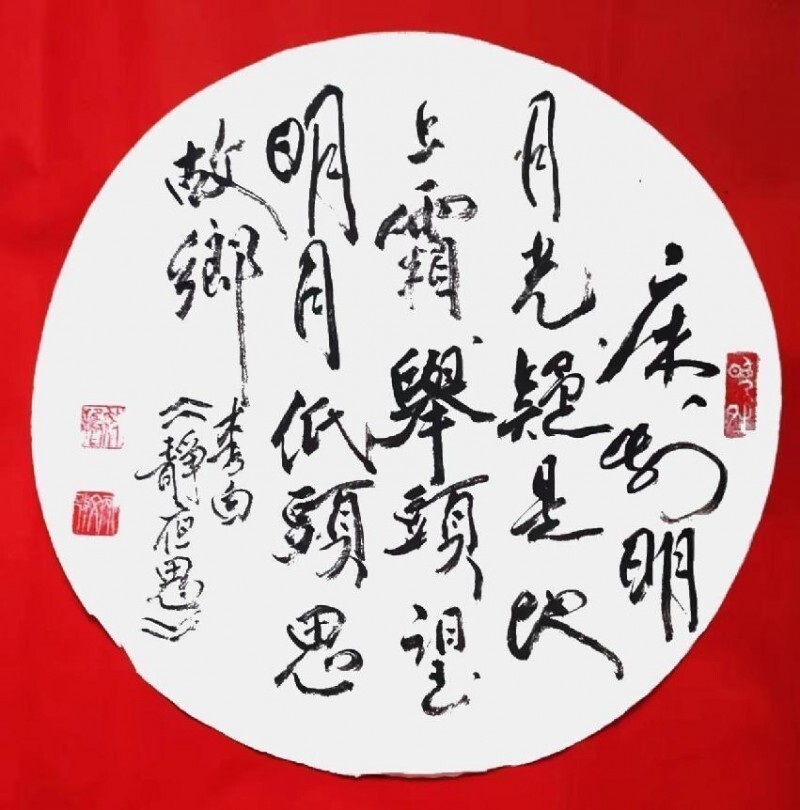 床前明
月光疑是地
上霜舉頭望
明月低頭思
故鄉
李白
《靜夜思》